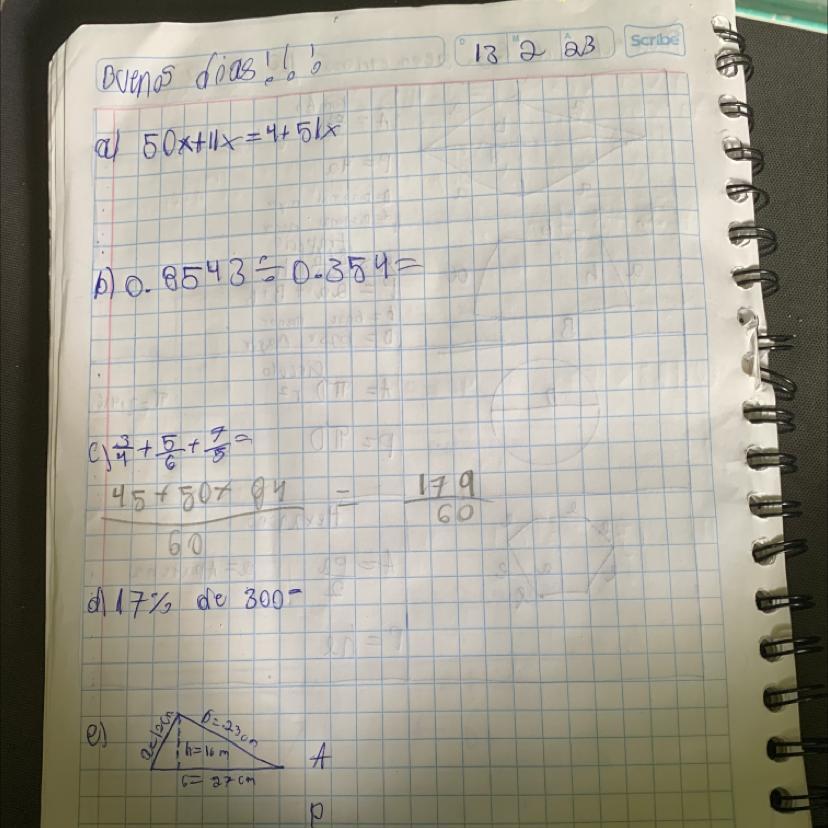 Buenos dias!!!
13 2 23
Scribe
a) 50x+11x=4+51x
b) 0.8543÷0.354=
c) 3/4 + 5/6 + 7/5 =
45+50+84 / 60 = 179 / 60
d) 17% de 300=
e)
b=23cm
h=16m
c= 27cm
A
P